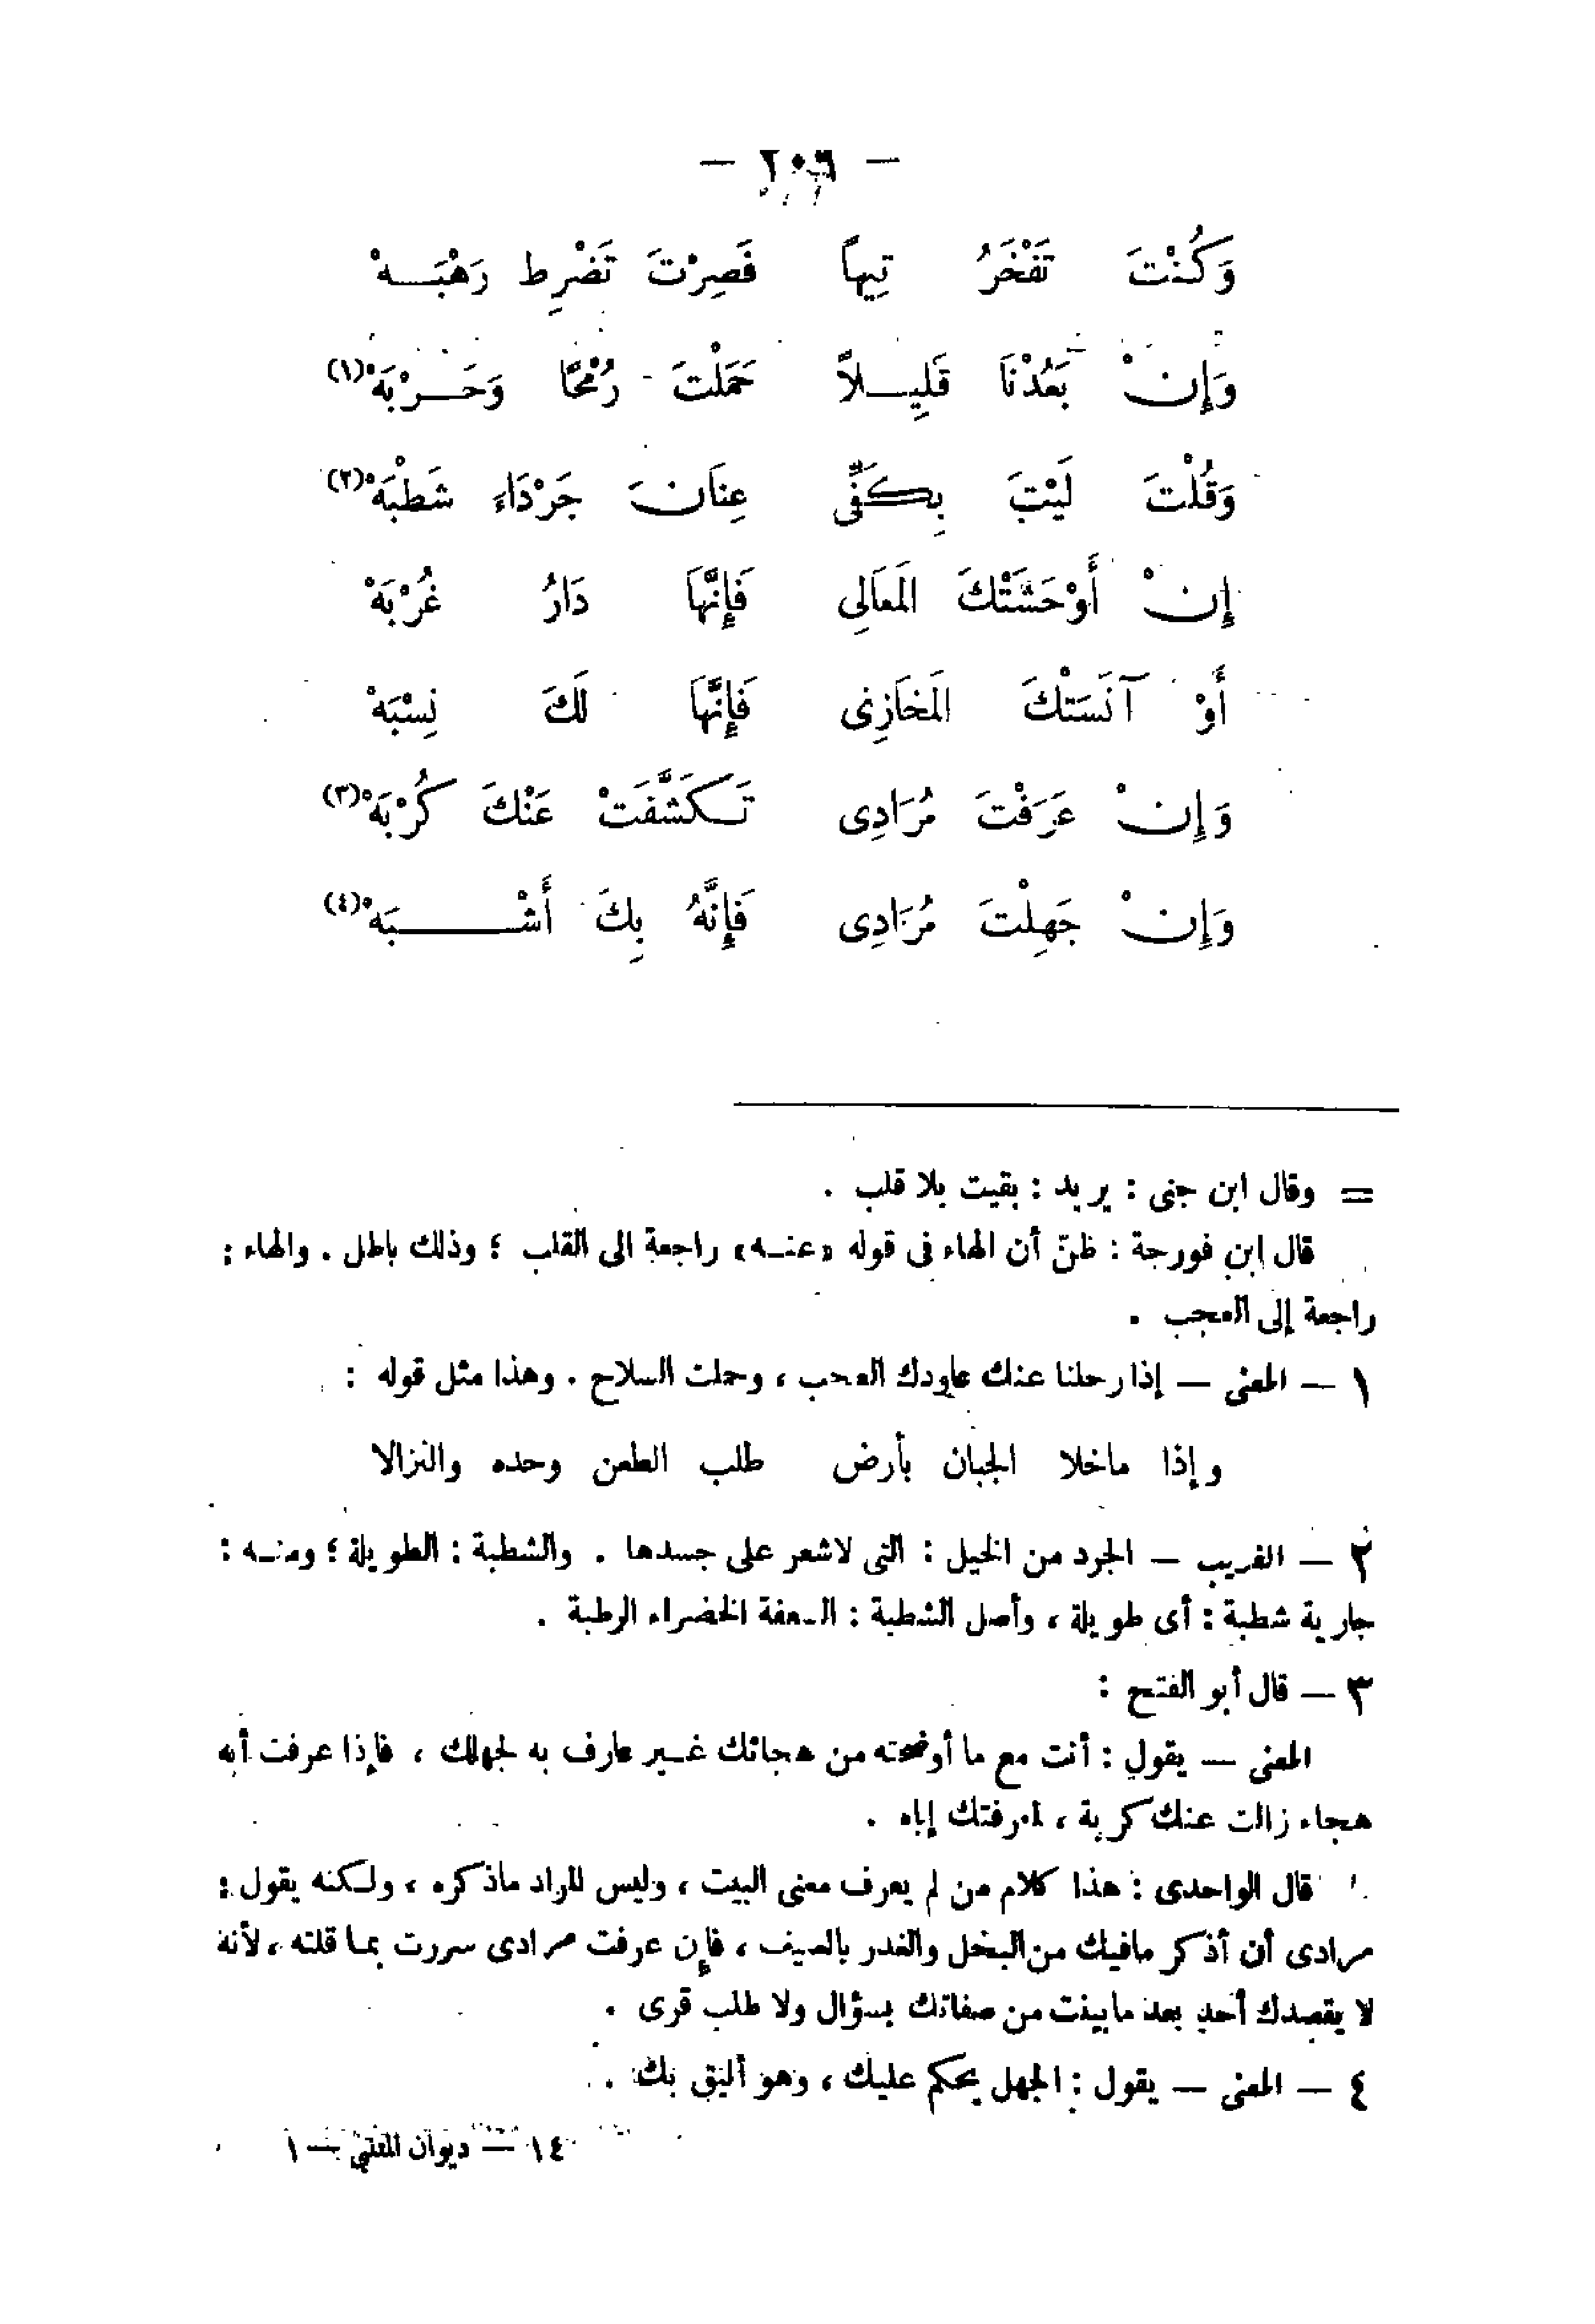 — ٢٠٦ —
وَكُنْتَ تَفْخَرُ تِيهاً فَصِرْتَ تَضْرِط رَهْبَـــهْ
وَإِنْ بَعُدْنَا قَلِيـــلاً حَمَلْتَ رُمْحًا وَحَـــرْبَهْ(١)
وَقُلْتَ لَيْتَ بِكَفِّى عِنَانَ جَرْدَاءِ شَطْبَهْ(٢)
إِنْ أَوْحَشَتْكَ المَعَالِى فَإِنَّهَا دَارُ غُرْبَهْ
أَوْ آنَسَتْكَ المَخَازِى فَإِنَّهَا لَكَ نِسْبَهْ
وَإِنْ عَرَفْتَ مُرَادِى تَكَشَّفَتْ عَنْكَ كُرْبَهْ(٣)
وَإِنْ جَهِلْتَ مُرَادِى فَإِنَّهُ بِكَ أَشْـــــبَهْ(٤)
= وقال ابن جنى : يريد : بقيت بلا قلب .
قال ابن فورجة : ظنّ أن الهاء فى قوله «عنـه» راجعة الى القلب ؛ وذلك باطل . والهاء :
راجعة إلى العجب .
١ — المعنى — إذا رحلنا عنك عاودك العجب ، وحملت السلاح . وهذا مثل قوله :
وإذا ماخلا الجبان بأرض طلب الطعن وحده والنزالا
٢ — الغريب — الجرد من الخيل : التى لاشعر على جسدها . والشطبة : الطويلة ؛ ومنـه :
جارية شطبة : أى طويلة ، وأصل الشطبة : السعفة الخضراء الرطبة .
٣ — قال أبو الفتح :
المعنى — يقول : أنت مع ما أوضحته من هجائك غـير عارف به لجهلك ، فإذا عرفت أنه
هجاء زالت عنك كربة ، لمعرفتك إياه .
قال الواحدى : هذا كلام من لم يعرف معنى البيت ، وليس المراد ماذكره ، ولكنه يقول :
مرادى أن أذكر مافيك من البخل والغدر بالضيف ، فإن عرفت مرادى سررت بما قلته ، لأنه
لا يقصدك أحد بعد مابينت من صفاتك بسؤال ولا طلب قرى .
٤ — المعنى — يقول : الجهل يحكم عليك ، وهو أليق بك .
١٤ — ديوان المتنبي — ١